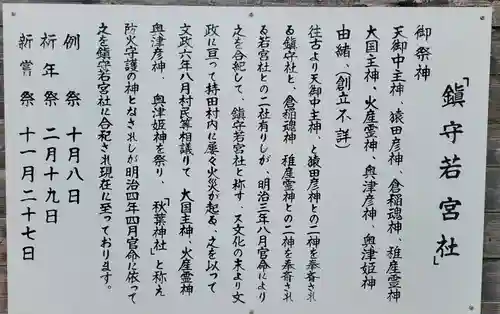 「鎮守若宮社」
御祭神
天御中主神、猿田彦神、倉稲魂神、稚産霊神
大国主神、火産霊神、奥津彦神、奥津姫神
由緒、(創立不詳)
往古より天御中主神、と猿田彦神との二神を奉斎され
る鎮守社と、倉稲魂神 稚産霊神との二神を奉斎され
る若宮社との二社有りしが、明治三年八月官命により
之を合祀して、鎮守若宮社と称す。又文化の末より文
政に亘って持田村内に屡々火災が起る、之を以って
文政六年八月村民等相議りて 大国主神、火産霊神
奥津彦神、 奥津姫神を祭り、「秋葉神社」と称え
防火守護の神となされしが明治四年四月官命に依って
之を鎮守若宮社に合祀され現在に至っております。
例 祭 十月八日
祈年祭 二月十九日
新嘗祭 十一月二十七日